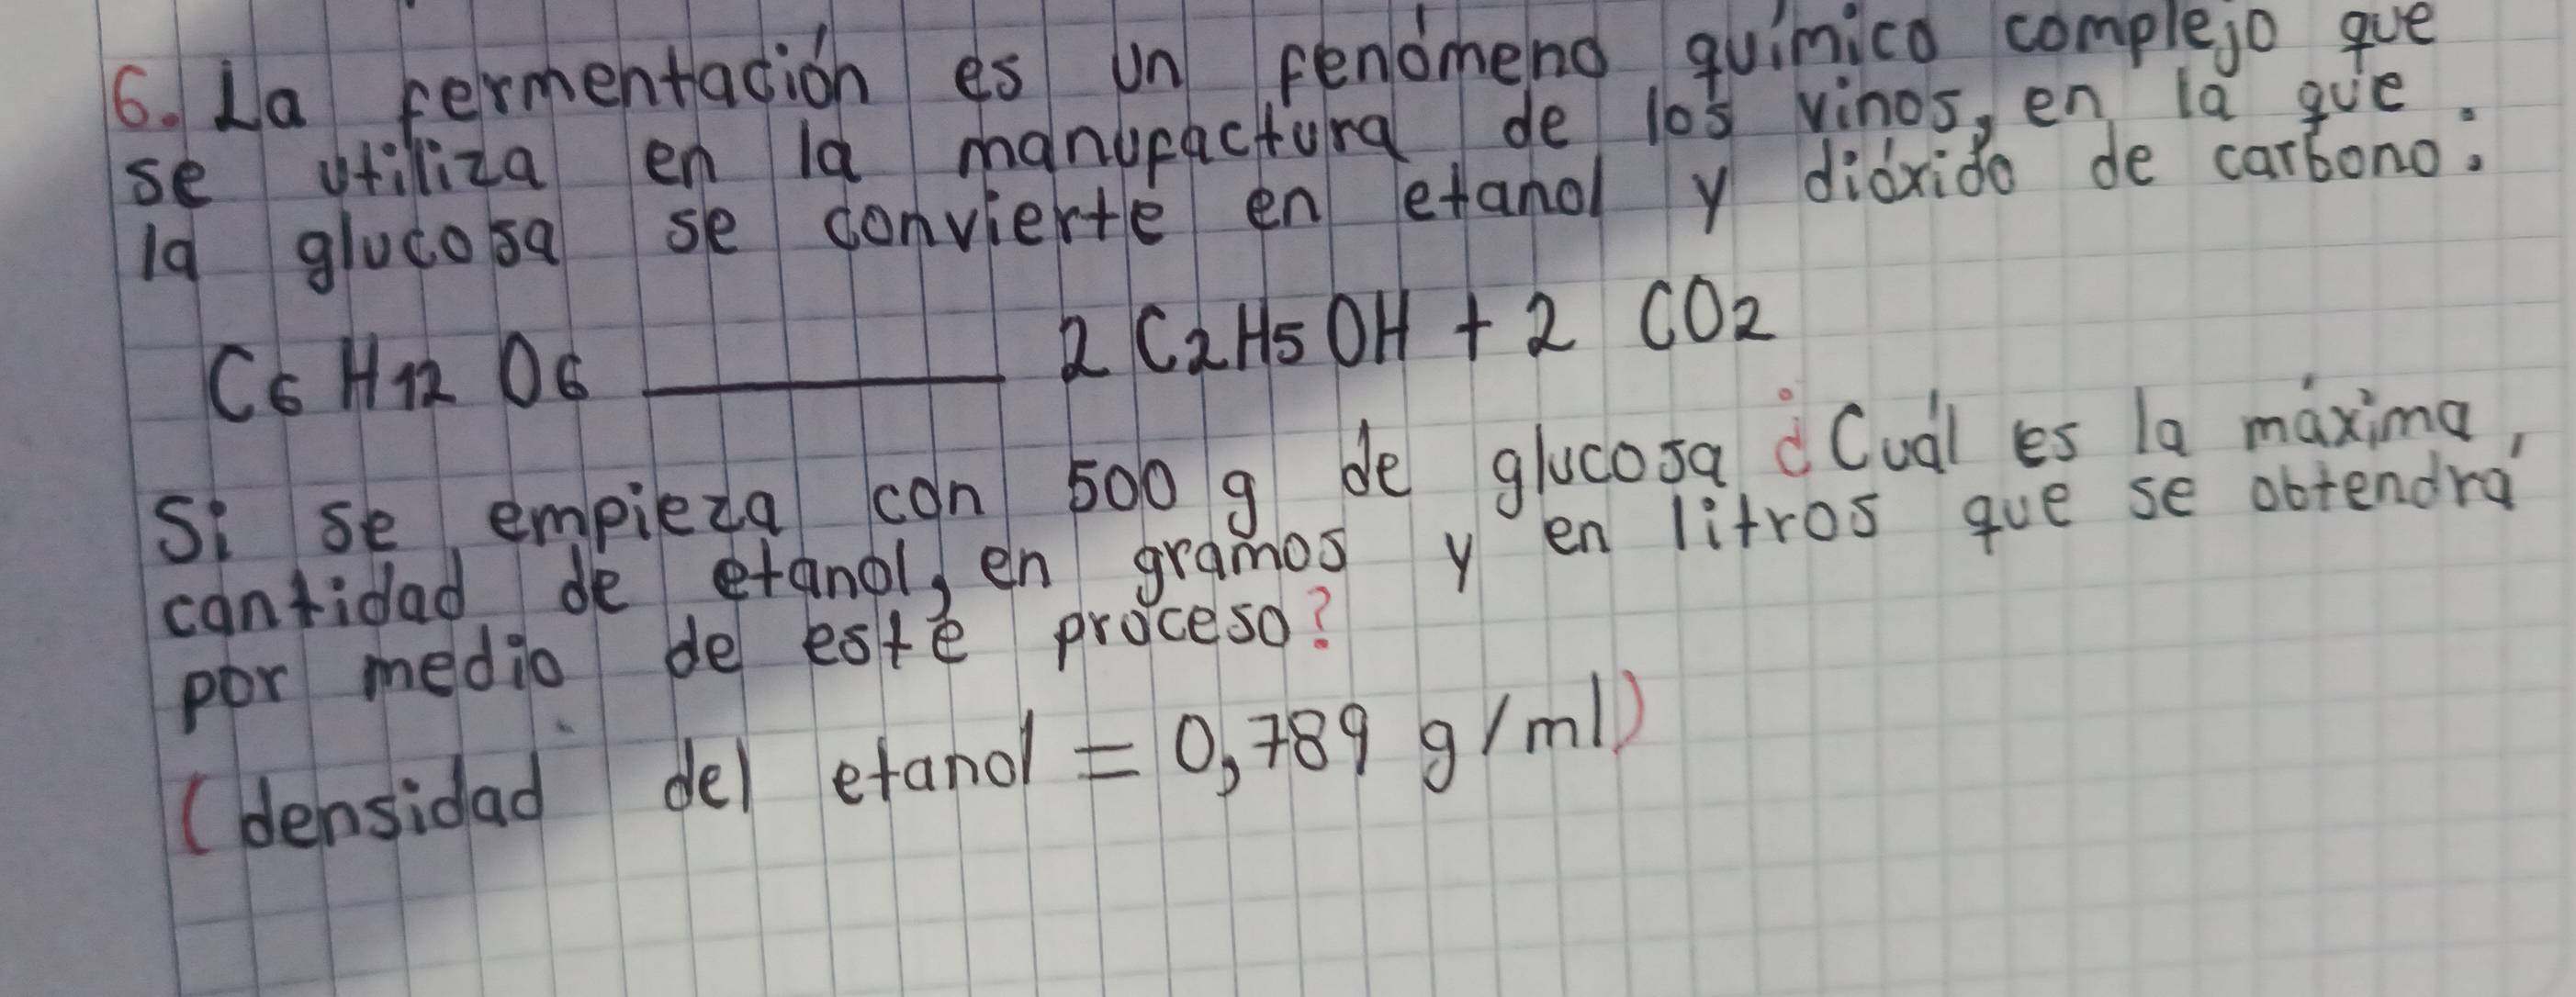 6. La fermentación es un fenómeno químico complejo que
se utiliza en la manufactura de los vinos, en la que.
la glucosa se convierte en etanol y dióxido de carbono:
C6 H12 O6 ——— 2 C2H5OH + 2 CO2
Si se empieza con 500 g de glucosa ¿Cuál es la máxima,
cantidad de etanol, en gramos y en litros que se obtendrá
por medio de este proceso?
(densidad del etanol = 0,789 g/ml)